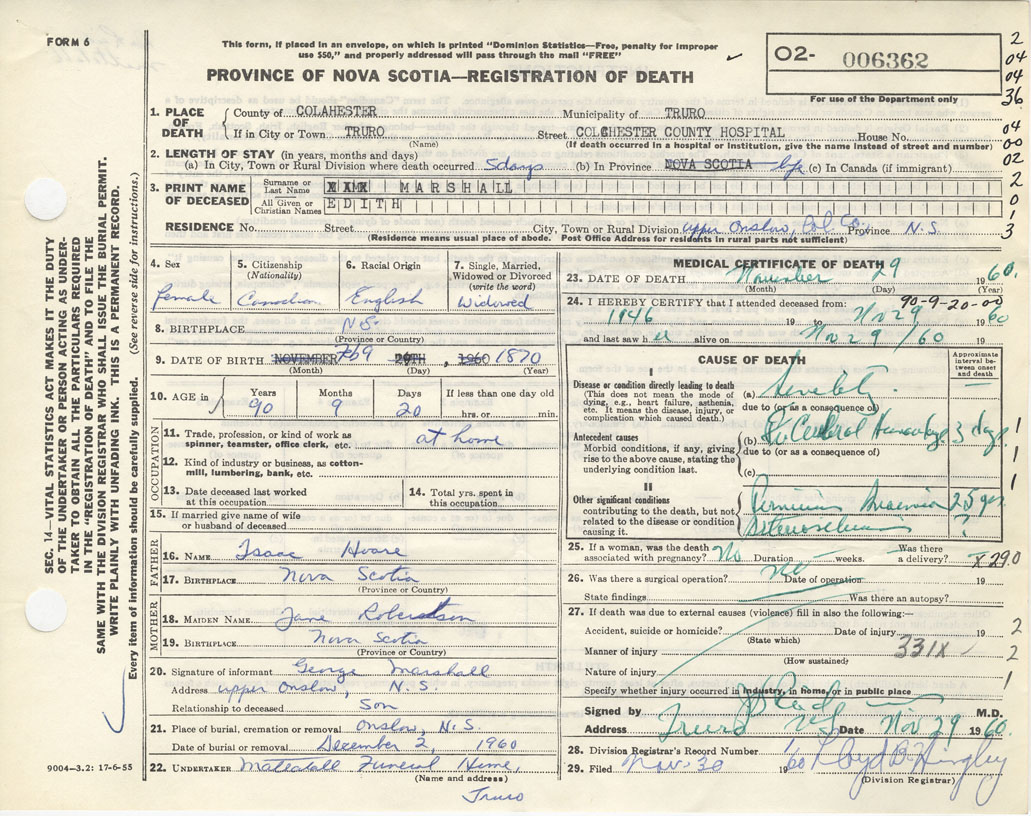 FORM 6
This form, if placed in an envelope, on which is printed "Dominion Statistics—Free, penalty for improper
use $50," and properly addressed will pass through the mail "FREE"
PROVINCE OF NOVA SCOTIA—REGISTRATION OF DEATH
O2- 006362
For use of the Department only
2
04
04
36
04
00
02
2
0
1
3
SEC. 14—VITAL STATISTICS ACT MAKES IT THE DUTY
OF THE UNDERTAKER OR PERSON ACTING AS UNDER-
TAKER TO OBTAIN ALL THE PARTICULARS REQUIRED
IN THE "REGISTRATION OF DEATH" AND TO FILE THE
SAME WITH THE DIVISION REGISTRAR WHO SHALL ISSUE THE BURIAL PERMIT.
WRITE PLAINLY WITH UNFADING INK. THIS IS A PERMANENT RECORD.
Every item of information should be carefully supplied. (See reverse side for instructions.)
1. PLACE OF DEATH
County of COLAHESTER Municipality of TRURO
If in City or Town TRURO Street COLCHESTER COUNTY HOSPITAL House No.
(Name) (If death occurred in a hospital or institution, give the name instead of street and number)
2. LENGTH OF STAY (in years, months and days)
(a) In City, Town or Rural Division where death occurred 5 days (b) In Province NOVA SCOTIA life (c) In Canada (if immigrant)
3. PRINT NAME OF DECEASED
Surname or Last Name MARSHALL
All Given or Christian Names EDITH
RESIDENCE No. Street City, Town or Rural Division upper Onslow, Col Co. Province N.S.
(Residence means usual place of abode. Post Office Address for residents in rural parts not sufficient)
4. Sex 5. Citizenship (Nationality) 6. Racial Origin 7. Single, Married, Widowed or Divorced (write the word)
female Canadian English Widowed
8. BIRTHPLACE N.S.
(Province or Country)
9. DATE OF BIRTH NOVEMBER Feb 9 29TH, 1960 1870
(Month) (Day) (Year)
10. AGE in Years Months Days If less than one day old
90 9 20 hrs. or min.
OCCUPATION
11. Trade, profession, or kind of work as spinner, teamster, office clerk, etc. at home
12. Kind of industry or business, as cotton-mill, lumbering, bank, etc.
13. Date deceased last worked at this occupation
14. Total yrs. spent in this occupation
15. If married give name of wife or husband of deceased
FATHER
16. NAME Isaac Hoare
17. BIRTHPLACE Nova Scotia
(Province or Country)
MOTHER
18. MAIDEN NAME Jane Robertson
19. BIRTHPLACE Nova Scotia
(Province or Country)
20. Signature of informant George Marshall
Address upper Onslow, N.S.
Relationship to deceased Son
21. Place of burial, cremation or removal Onslow, N.S.
Date of burial or removal December 2, 1960
22. UNDERTAKER Funeral Home,
(Name and address)
Truro
9004—3.2: 17-6-55
MEDICAL CERTIFICATE OF DEATH
23. DATE OF DEATH November 29 1960.
(Month) (Day) (Year)
24. I HEREBY CERTIFY that I attended deceased from: 90-9-20-00
1946 19 to Nov 29 1960
and last saw her alive on Nov 29/60 19
CAUSE OF DEATH
Approximate interval between onset and death
I
Disease or condition directly leading to death
(This does not mean the mode of dying, e.g.; heart failure, asthenia, etc. It means the disease, injury, or complication which caused death.)
(a) Senility
due to (or as a consequence of)
Antecedent causes
Morbid conditions, if any, giving rise to the above cause, stating the underlying condition last.
(b) Cerebral Hemorrhage 3 days
due to (or as a consequence of)
(c)
1
1
1
II
Other significant conditions
contributing to the death, but not related to the disease or condition causing it.
Pernicious Anaemia 25 yrs
?
25. If a woman, was the death associated with pregnancy? No Duration weeks. Was there a delivery? X290
26. Was there a surgical operation? No Date of operation 19
State findings Was there an autopsy?
27. If death was due to external causes (violence) fill in also the following:—
Accident, suicide or homicide? Date of injury 19 2
(State which)
Manner of injury 331X 2
(How sustained)
Nature of injury 1
Specify whether injury occurred in industry, in home, or in public place
Signed by M.D.
Address Truro NS Date Nov 29 1960.
28. Division Registrar's Record Number
29. Filed Nov 30 1960 Lloyd B. Hingley
(Division Registrar)